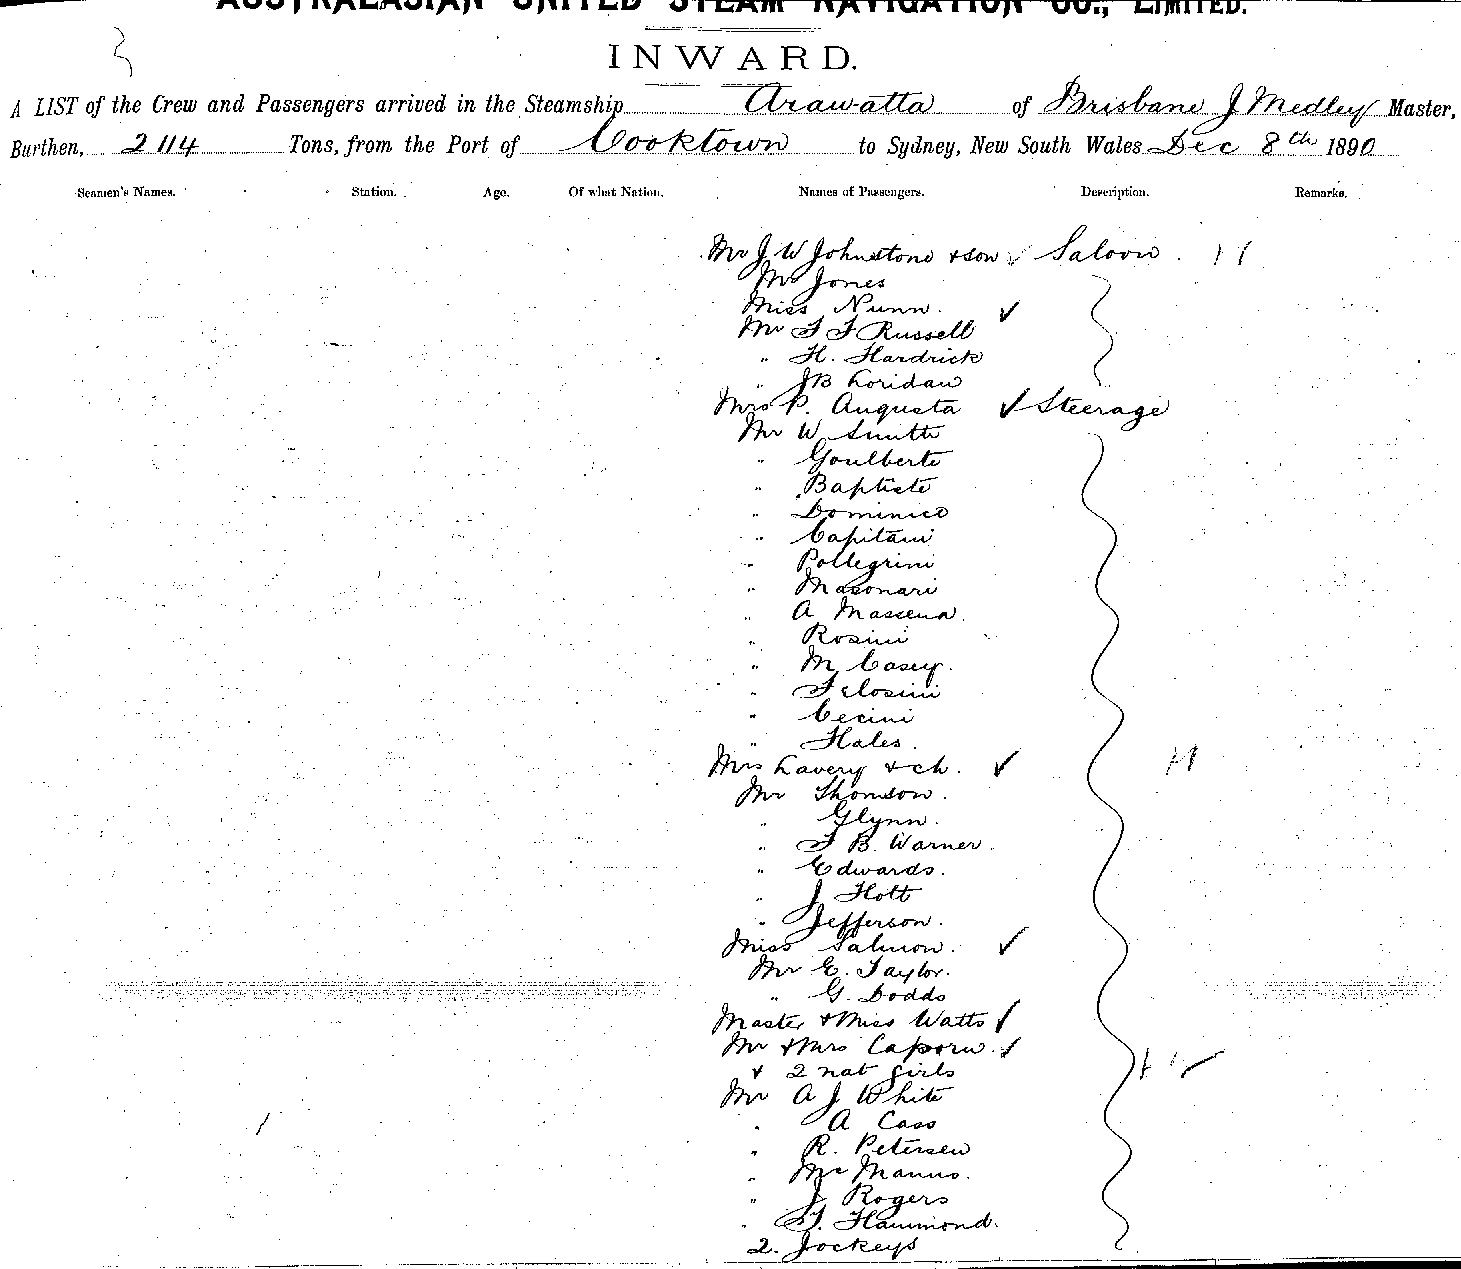 AUSTRALASIAN UNITED STEAM NAVIGATION CO., LIMITED.
INWARD.
A LIST of the Crew and Passengers arrived in the Steamship Arawatta of Brisbane J Medley Master,
Burthen, 2114 Tons, from the Port of Cooktown to Sydney, New South Wales Dec 8th 1890
Seamen's Names. Station. Age. Of what Nation. Names of Passengers. Description. Remarks.
Mr J W Johnstone + son ✓ Saloon
Mr Jones
Miss Nunn. ✓
Mr F F Russell
" H. Hardrick
" J B Loridan
Mrs P. Augusta ✓ Steerage
Mr W Smith
" Goulberte
" Baptiste
" Dominico
" Capitani
" Pollegrini
" Masonari
" A Massena
" Rosini
" M Casey.
" Felosini
" Cecini
" Hales.
Mrs Lavery + ch. ✓
Mr Thomson.
" Glynn.
" F B. Warner.
" Edwards.
" J Holt
" Jefferson.
Miss Salmon. ✓
Mr E. Taylor.
" G. Dodds
Master + Miss Watts ✓
Mr + Mrs Caporn. ✓
+ 2 nat girls
Mr A J White
" A Cass
" R. Petersen
" McManus.
" J Rogers
" T. Hammond.
2. Jockeys